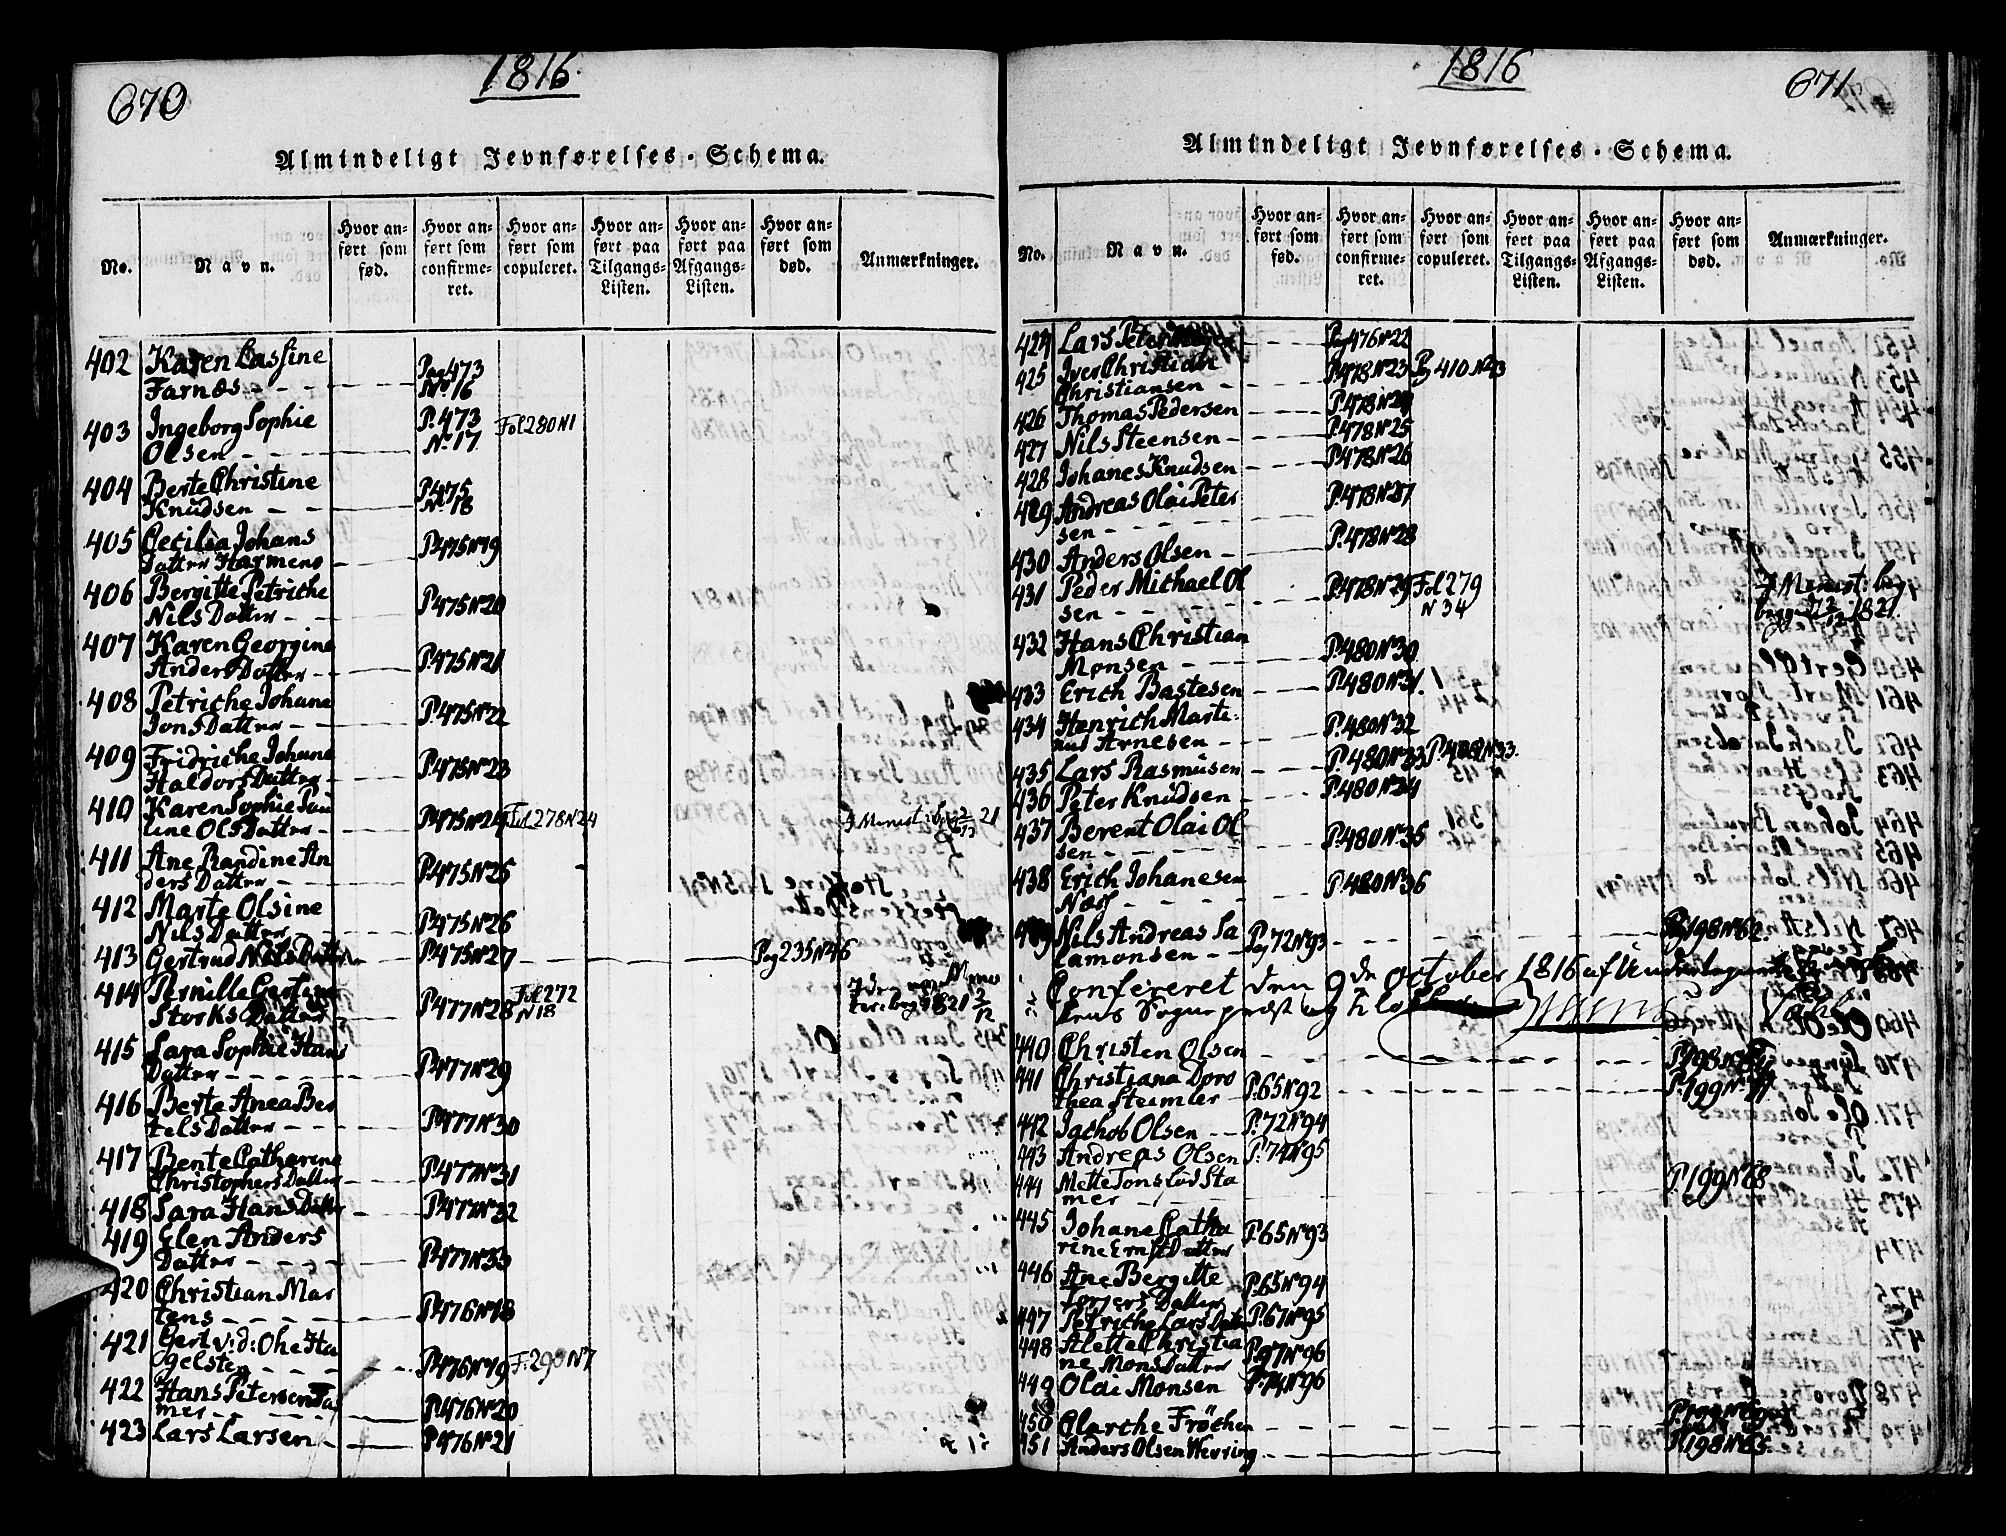 670
1816.
Almindeligt Jevnførelses-Schema.
No.
Navn.
Hvor an-
ført som
fød.
Hvor an-
ført som
confirme-
ret.
Hvor an-
ført som
copuleret.
Hvor an-
ført paa
Tilgangs-
Listen.
Hvor an-
ført paa
Afgangs-
Listen.
Hvor an-
ført som
død.
Anmærkninger.
402 Karen Cassine
Farnæs - - - Pag 473 No. 16
403 Ingeborg Sophie
Olsen - - P. 473 No. 17 Fol 280 N 1
404 Berte Christine
Knudsen - - P. 475 No. 18
405 Cecilia Johans
Datter Harmens - P. 475 No 19
406 Bergitte Petriche
Nils Datter - - P. 475 No 20
407 Karen Georgine
Anders Datter - P. 475 No 21
408 Petriche Johane
Jons Datter - P. 475 No 22
409 Fridriche Johane
Haldors Datter - P. 475 No 23
410 Karen Sophie Pau
line Ols Datter - P. 475 No 24 Fol. 278 N 24
411 Ane Randine An
ders Datter - P. 475 No 25
412 Marte Olsine
Nils Datter - P. 475 No 26
413 Gertrud Nils Datter P. 475 No 27 - - - Pag 235 No 46
414 Pernille
Storks Datter - P. 477 No 28 Fol 272 N 18
415 Sara Sophie Hans
Datter - - - P. 477 No 29
416 Berte Anea Ber
tels Datter - - P. 477 No 30
417 Bente Catharine
Christophers Datter P. 477 No 31
418 Sara Hans Datter P. 477 No 32
419 Elen Anders
Datter - - - P. 477 No 33
420 Christian Mar
tens - - - P. 476 No 18
421 Gert v: d: Ohe Ha
gelsten - - P. 476 No 19 F. 290 N 7
422 Hans Petersen
mer - - - P. 476 No 20
423 Lars Larsen - P. 476 No 21
1816
671
Almindeligt Jevnførelses-Schema.
No.
Navn.
Hvor an-
ført som
fød.
Hvor an-
ført som
confirme-
ret.
Hvor an-
ført som
copuleret.
Hvor an-
ført paa
Tilgangs-
Listen.
Hvor an-
ført paa
Afgangs-
Listen.
Hvor an-
ført som
død.
Anmærkninger.
424 Lars Peter - - - Pag 476 No 22
425 Iver Christian
Christiansen - - P. 478 No 23 Pg 410 No 43
426 Thomas Pedersen P. 478 No 24
427 Nils Steensen - P. 478 No 25
428 Johanes Knudsen P. 478 No 26
429 Andreas Olai Peter
sen - - - P. 478 No 27
430 Anders Olsen - P. 478 No 28
431 Peder Michael Ol
sen - - - P. 478 No 29 Fol 279 N 34
432 Hans Christian
Monsen - - P. 480 No 30
433 Erich Bastesen - P. 480 No 31.
434 Henrich Marte:
nus Arnesen - - P. 480 No 32
435 Lars Rasmusen - P. 480 No 33
436 Peter Knudsen - P. 480 No 34
437 Berent Olai Ol
sen - - - P. 480 No 35
438 Erich Johanesen
Næss - - - P. 480 No 36
439 Nils Andreas Sa
lamonsen - - Pag 72 No 93 - - - Pg 198 No 62.
Confereret den 9de October 1816 af Undertegnede
440 Christen Olsen - - -
441 Christiana Doro
thea Steimler P. 65 No 92 - - -
442 Jachob Olsen - - P. 72 No 94
443 Andreas Olsen P. 74 No 95
444 Mette
mer - - - P. 199 No 88
445 Johane Catha
rine Ernst Datter P. 65 No 93
446 Ane Bergitte
Torgers Datter P. 65 No 94
447 Petriche Lars Datter P. 67 No 95
448 Alette Christia
ne Mons Datter P. 97 No 96
449 Olai Monsen P. 74 No 96
450 Clarche Fröchen - - -
451 Anders Olsen Werring - - - P. 198 No 65.